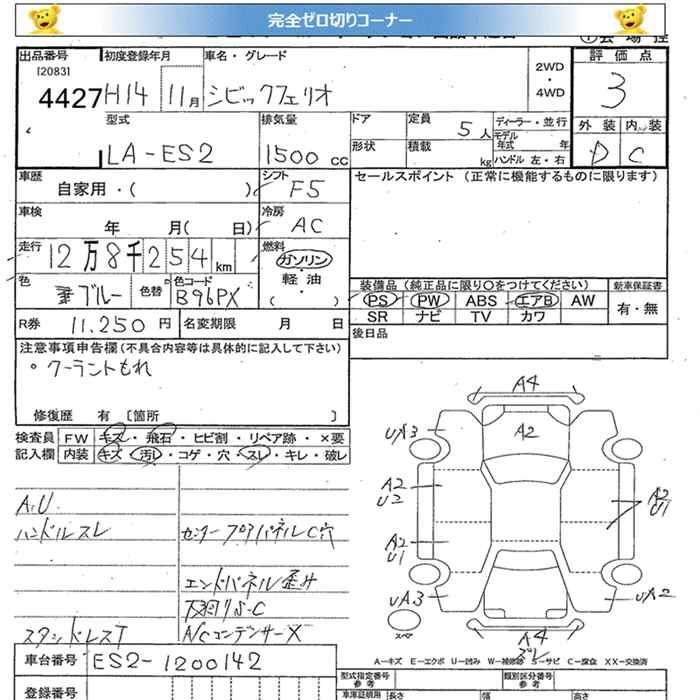 完全ゼロ切りコーナー
出品番号 初度登録年月 車名・グレード 評価点
[2083]
4427 H14 11月 シビックフェリオ 2WD・4WD 3
型式 排気量 ドア 定員 5人 ディーラー・並行 外装 内装
LA-ES2 1500cc 形状 積載 kg モデル年式 年 D C
ハンドル 左・右
車歴 自家用・( ) シフト F5 セールスポイント (正常に機能するものに限ります)
車検 年 月( 日) 冷房 AC
走行 12万8千254km 燃料 ガソリン・軽油・( )
色 ブルー 色替 色コード B96PX
装備品 (純正品に限り○をつけてください) 新車保証書
PS PW ABS エアB AW 有・無
SR ナビ TV カワ
R券 11.250円 名変期限 月 日 後日品
注意事項申告欄(不具合内容等は具体的に記入して下さい)
・クーラントもれ
修復歴 有 [箇所 ]
検査員 FW キズ・飛石・ヒビ割・リペア跡・×要
記入欄 内装 キズ・汚レ・コゲ・穴・スレ・キレ・破レ
A.U
ハンドルスレ センターフロアパネルC穴
エンドパネル歪み
スタッドレスT A/Cコンデンサーズ
A4
UA3 A2
A2 U2 A2 U1
A2 U1
UA3 UA2
スペレ A4
ズレ
A-キズ E-エクボ U-凹み W-補修跡 S-サビ C-腐食 XX-交換済
車台番号 ES2-1200142
登録番号 型式指定番号 参考 類別区分番号 参考
車庫証明用 長さ 幅 高さ